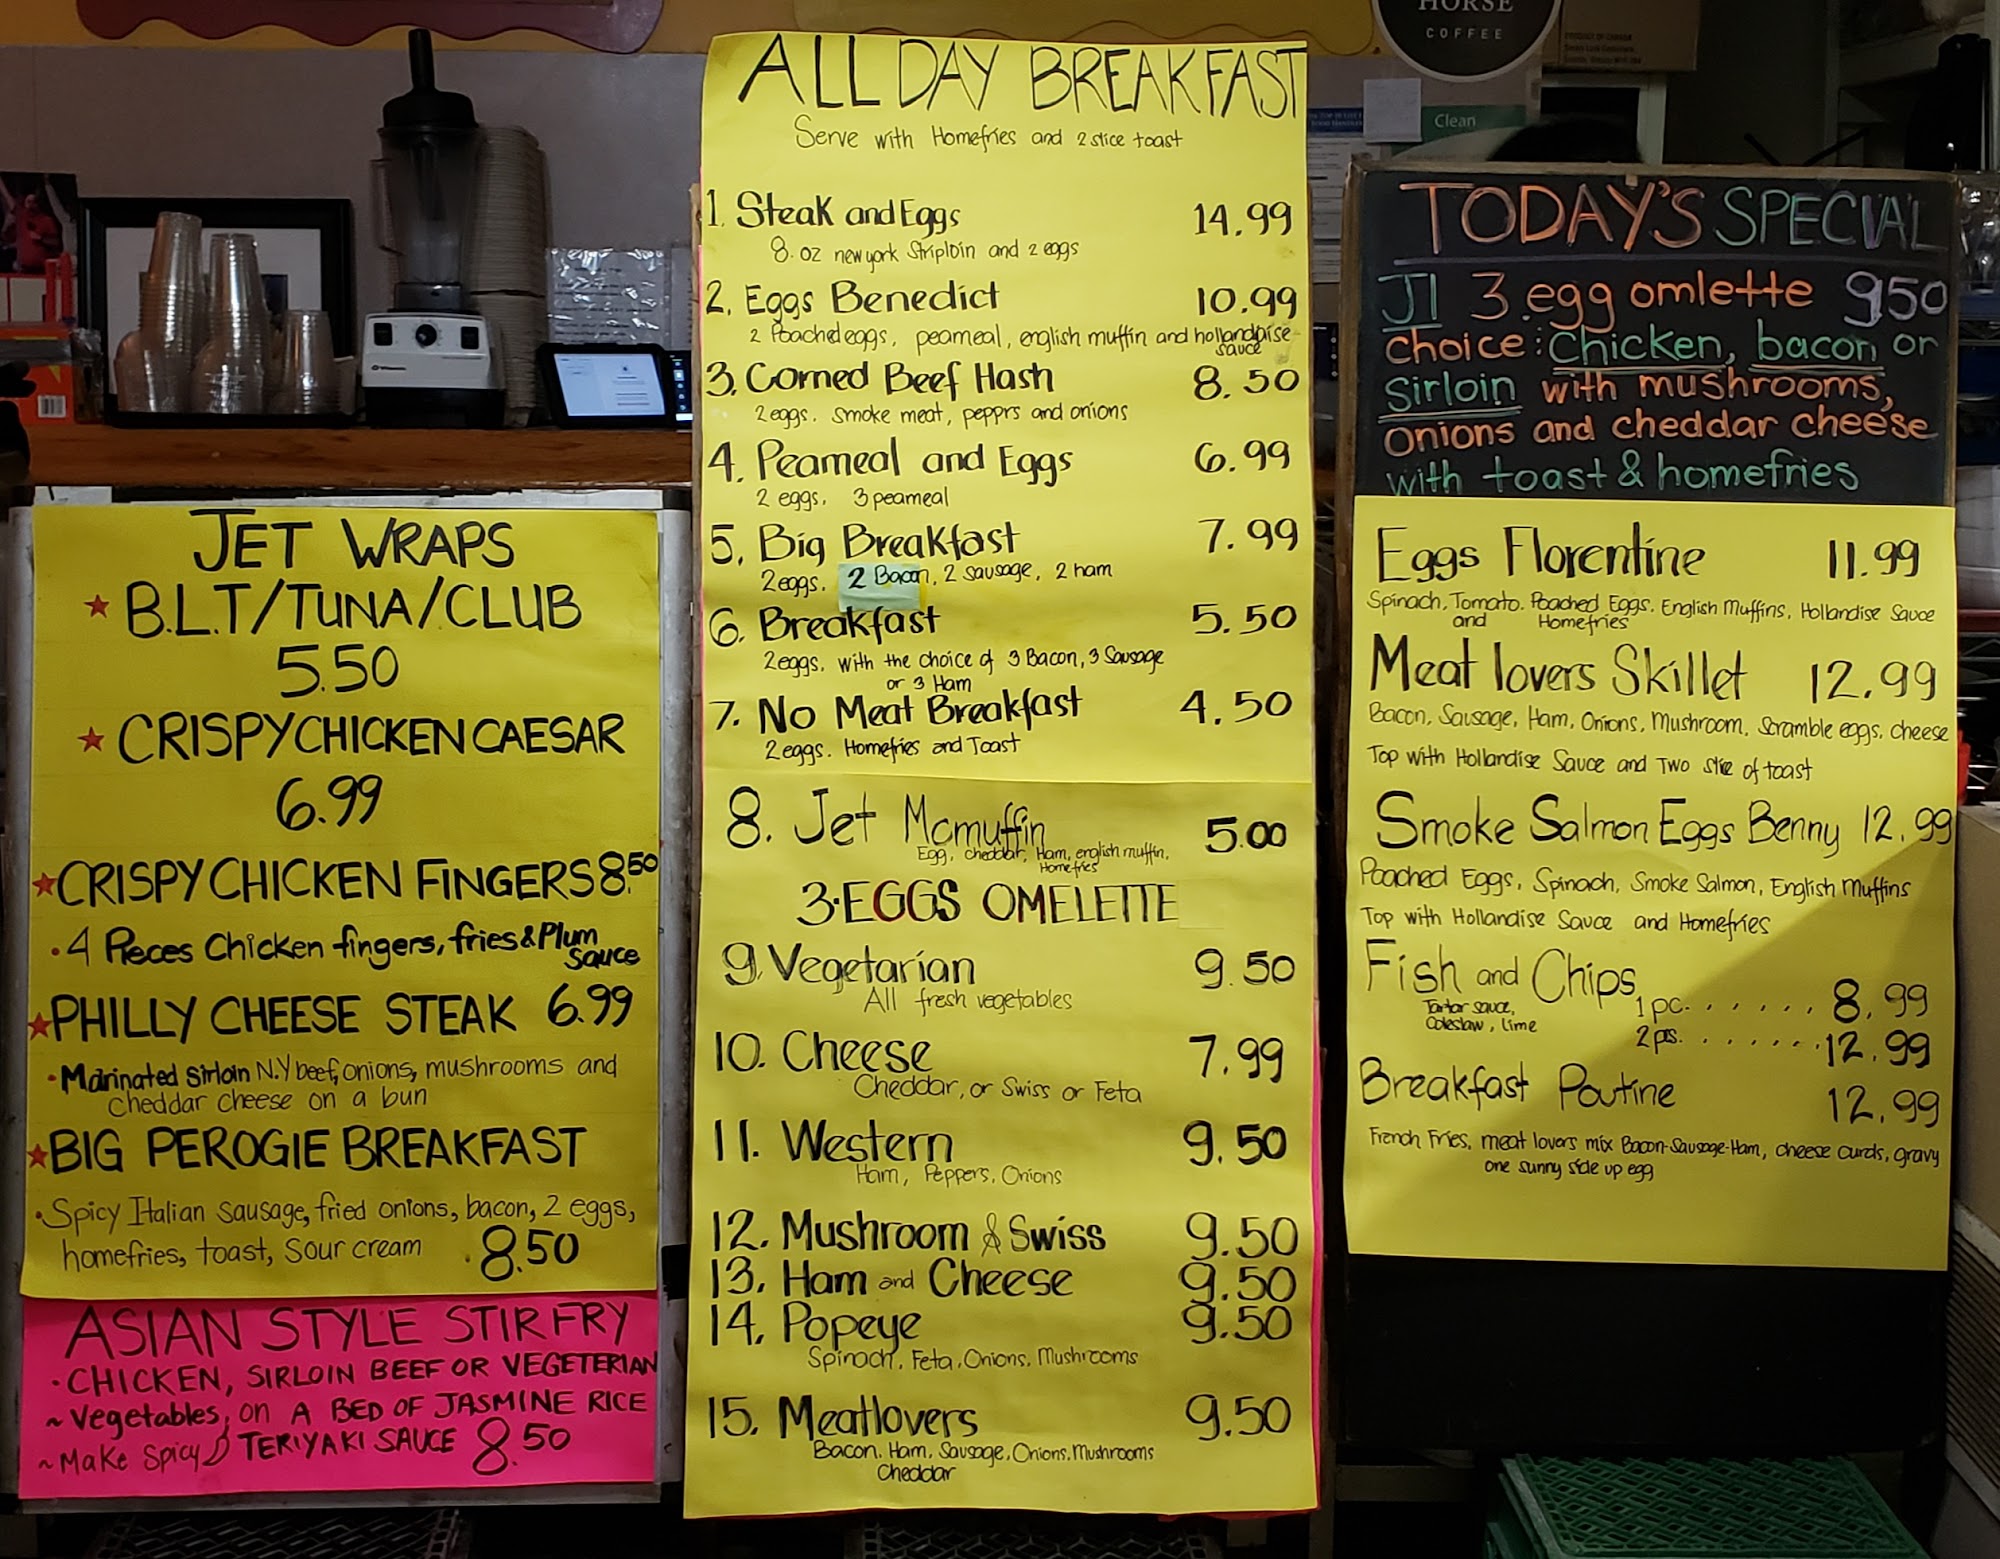 HORSE
COFFEE
Clean
ALL DAY BREAKFAST
Serve with Homefries and 2 slice toast
1. Steak and Eggs 14.99
8. oz newyork Striploin and 2 eggs
2. Eggs Benedict 10.99
2 Poached eggs, peameal, english muffin and hollandaise
sauce
3. Corned Beef Hash 8.50
2 eggs. smoke meat, pepprs and onions
4. Peameal and Eggs 6.99
2 eggs. 3 peameal
5. Big Breakfast 7.99
2 eggs. 2 Bacon, 2 sausage, 2 ham
6. Breakfast 5.50
2 eggs. with the choice of 3 Bacon, 3 Sausage
or 3 Ham
7. No Meat Breakfast 4.50
2 eggs. Homefries and Toast
8. Jet Mcmuffin 5.00
Egg, cheddar, Ham, english muffin,
Homefries
3-EGGS OMELETTE
9. Vegetarian 9.50
All fresh vegetables
10. Cheese 7.99
Cheddar, or Swiss or Feta
11. Western 9.50
Ham, Peppers, Onions
12. Mushroom & Swiss 9.50
13. Ham and Cheese 9.50
14. Popeye 9.50
Spinach, Feta, Onions, Mushrooms
15. Meatlovers 9.50
Bacon, Ham, Sausage, Onions, Mushrooms
Cheddar
JET WRAPS
B.L.T/TUNA/CLUB
5.50
CRISPY CHICKEN CAESAR
6.99
CRISPY CHICKEN FINGERS 8.50
• 4 Pieces Chicken fingers, fries & Plum
Sauce
PHILLY CHEESE STEAK 6.99
• Marinated Sirloin N.Y beef, onions, mushrooms and
cheddar cheese on a bun
BIG PEROGIE BREAKFAST
• Spicy Italian sausage, fried onions, bacon, 2 eggs,
homefries, toast, sour cream . 8.50
ASIAN STYLE STIR FRY
• CHICKEN, SIRLOIN BEEF OR VEGETERIAN
~ Vegetables, on A BED OF JASMINE RICE
~ Make Spicy TERIYAKI SAUCE 8.50
TODAY'S SPECIAL
J1 3 egg omlette 9.50
choice: Chicken, bacon or
Sirloin with mushrooms,
onions and cheddar cheese
with toast & homefries
Eggs Florentine 11.99
Spinach, Tomato. Poached Eggs. English Muffins, Hollandise Sauce
and Homefries
Meat lovers Skillet 12.99
Bacon, Sausage, Ham, Onions, Mushroom, Scramble eggs, cheese
Top with Hollandise Sauce and Two slice of toast
Smoke Salmon Eggs Benny 12.99
Poached Eggs, Spinach, Smoke Salmon, English Muffins
Top with Hollandise Sauce and Homefries
Fish and Chips
Tartar sauce,
Coleslaw, lime
1 pc. . . . . . . 8.99
2 pcs. . . . . . . 12.99
Breakfast Poutine 12.99
French Fries, meat lovers mix Bacon-Sausage-Ham, cheese curds, gravy
one sunny side up egg